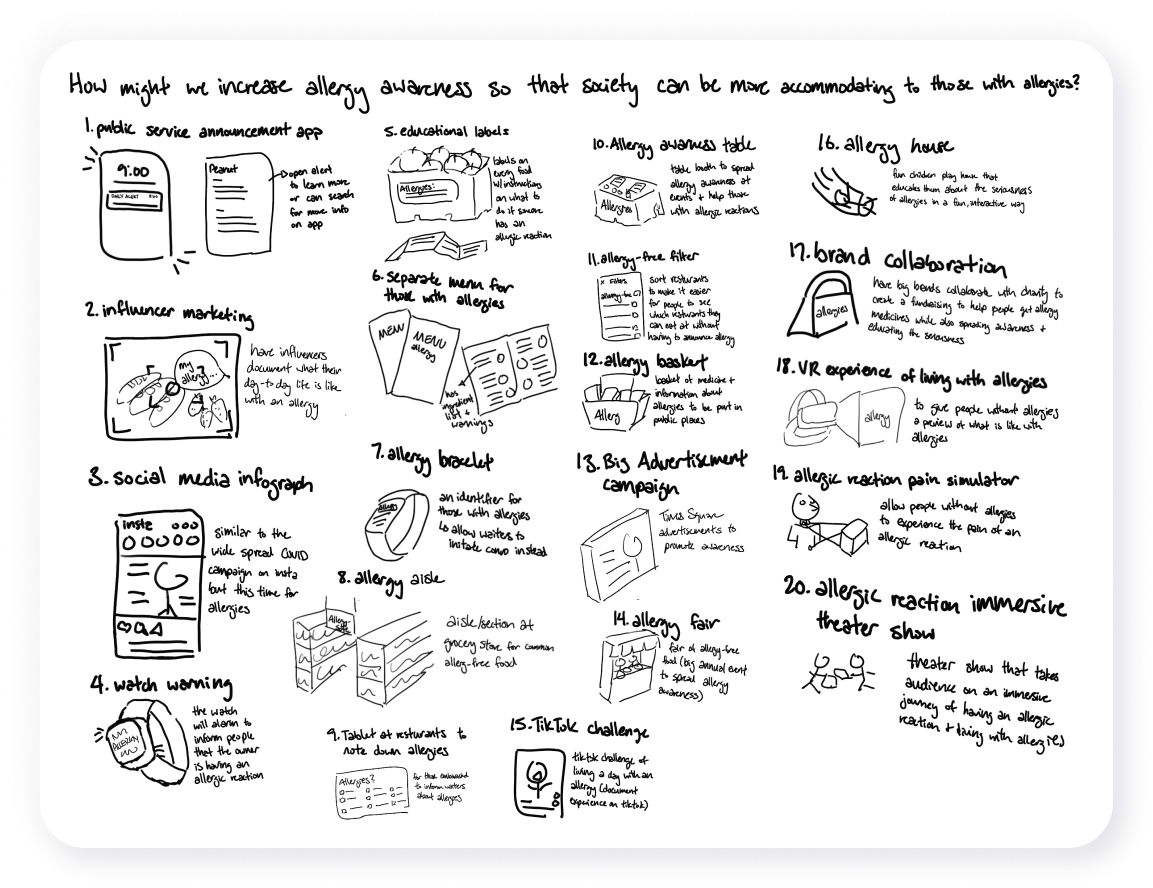 How might we increase allergy awareness so that society can be more accommodating to those with allergies?
1. public service announcement app
9:00
DAILY ALERT
Peanut
open alert
to learn more
or can search
for more info
on app
2. influencer marketing
my
allergy...
have influencers
document what their
day-to day life is like
with an allergy
3. social media infograph
insta
similar to the
wide spread COVID
campaign on insta
but this time for
allergies
4. watch warning
ALLERGY
the watch
will alarm to
inform people
that the owner
is having an
allergic reaction
5. educational labels
Allergies:
labels on
every food
w/instructions
on what to
do if someone
has an
allergic reaction
6. separate menu for
those with allergies
MENU
MENU
allergy
has
ingredient
list +
warnings
7. allergy bracelet
allergy
an identifier for
those with allergies
↳ allow waiters to
initiate convo instead
8. allergy aisle
Allergy-
safe
aisle/section at
grocery store for common
allerg-free food
9. Tablet at resturants to
note down allergies
Allergies?
for those embarrassed
to inform waiters
about allergies
10. Allergy awarness table
Allergies
table booth to spread
allergy awarness at
events + help those
with allergic reactions
11. allergy-free filter
x Filters
allergy-free
sort resturants
to make it easier
for people to see
which resturants they
can eat at without
having to announce allergy
12. allergy basket
Allergy
basket of medicine +
information about
allergies to be part in
public places
13. Big Advertisement
campaign
Times Square
advertisements to
promote awareness
14. allergy fair
fair of allergy-free
food (big annual event
to spread allergy
awareness)
15. TikTok challenge
tiktok challenge of
living a day with an
allergy (document
experience on tiktok)
16. allergy house
fun children play house that
educates them about the seriousness
of allergies in a fun, interactive way
17. brand collaboration
allergies
have big brands collaborate with charity to
create a fundraising to help people get allergy
medicines while also spreading awareness +
educating the seriousness
18. VR experience of living with allergies
allergy
to give people without allergies
a preview of what is like with
allergies
19. allergic reaction pain simulator
allow people without allergies
to experience the pain of an
allergic reaction
20. allergic reaction immersive
theater show
theater show that takes
audience on an immersive
journey of having an allergic
reaction + living with allergies